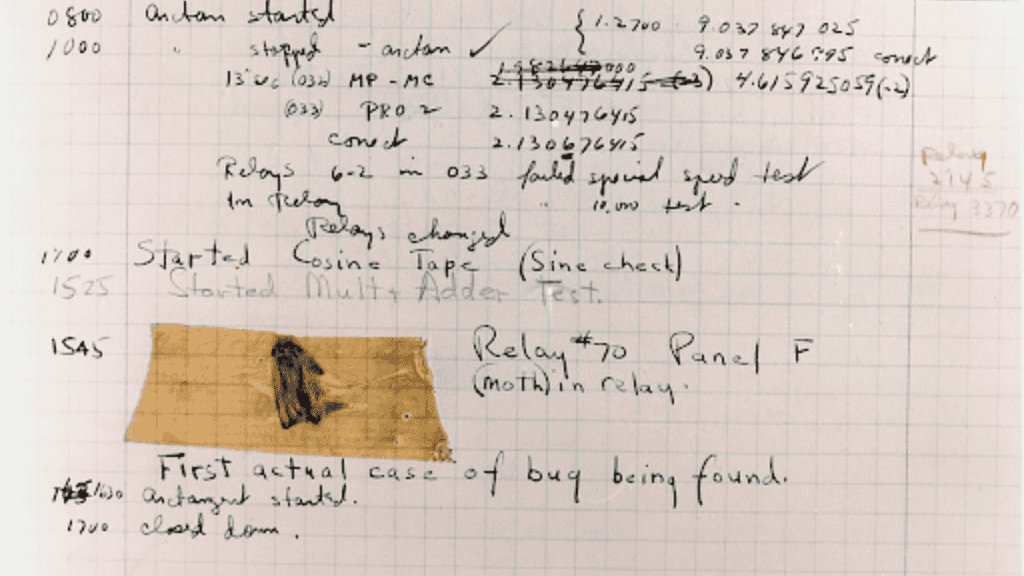 0800 arctan started { 1.2700 9.037 847 025
1000 " stopped - arctan ✓ 9.037 846 995 correct
1.982647000
13"uc (032) MP - MC 2.130476415 (-3) 4.615925059(-2)
(033) PRO 2 2.130476415
correct 2.130676415
Relays 6-2 in 033 failed special speed test
In Relay " 10.000 test .
Relay
2145
Relay 3370
Relays changed
1700 Started Cosine Tape (Sine check)
1525 Started Mult + Adder Test.
1545 Relay #70 Panel F
(moth) in relay.
First actual case of bug being found.
1630 arctangent started.
1700 closed down .